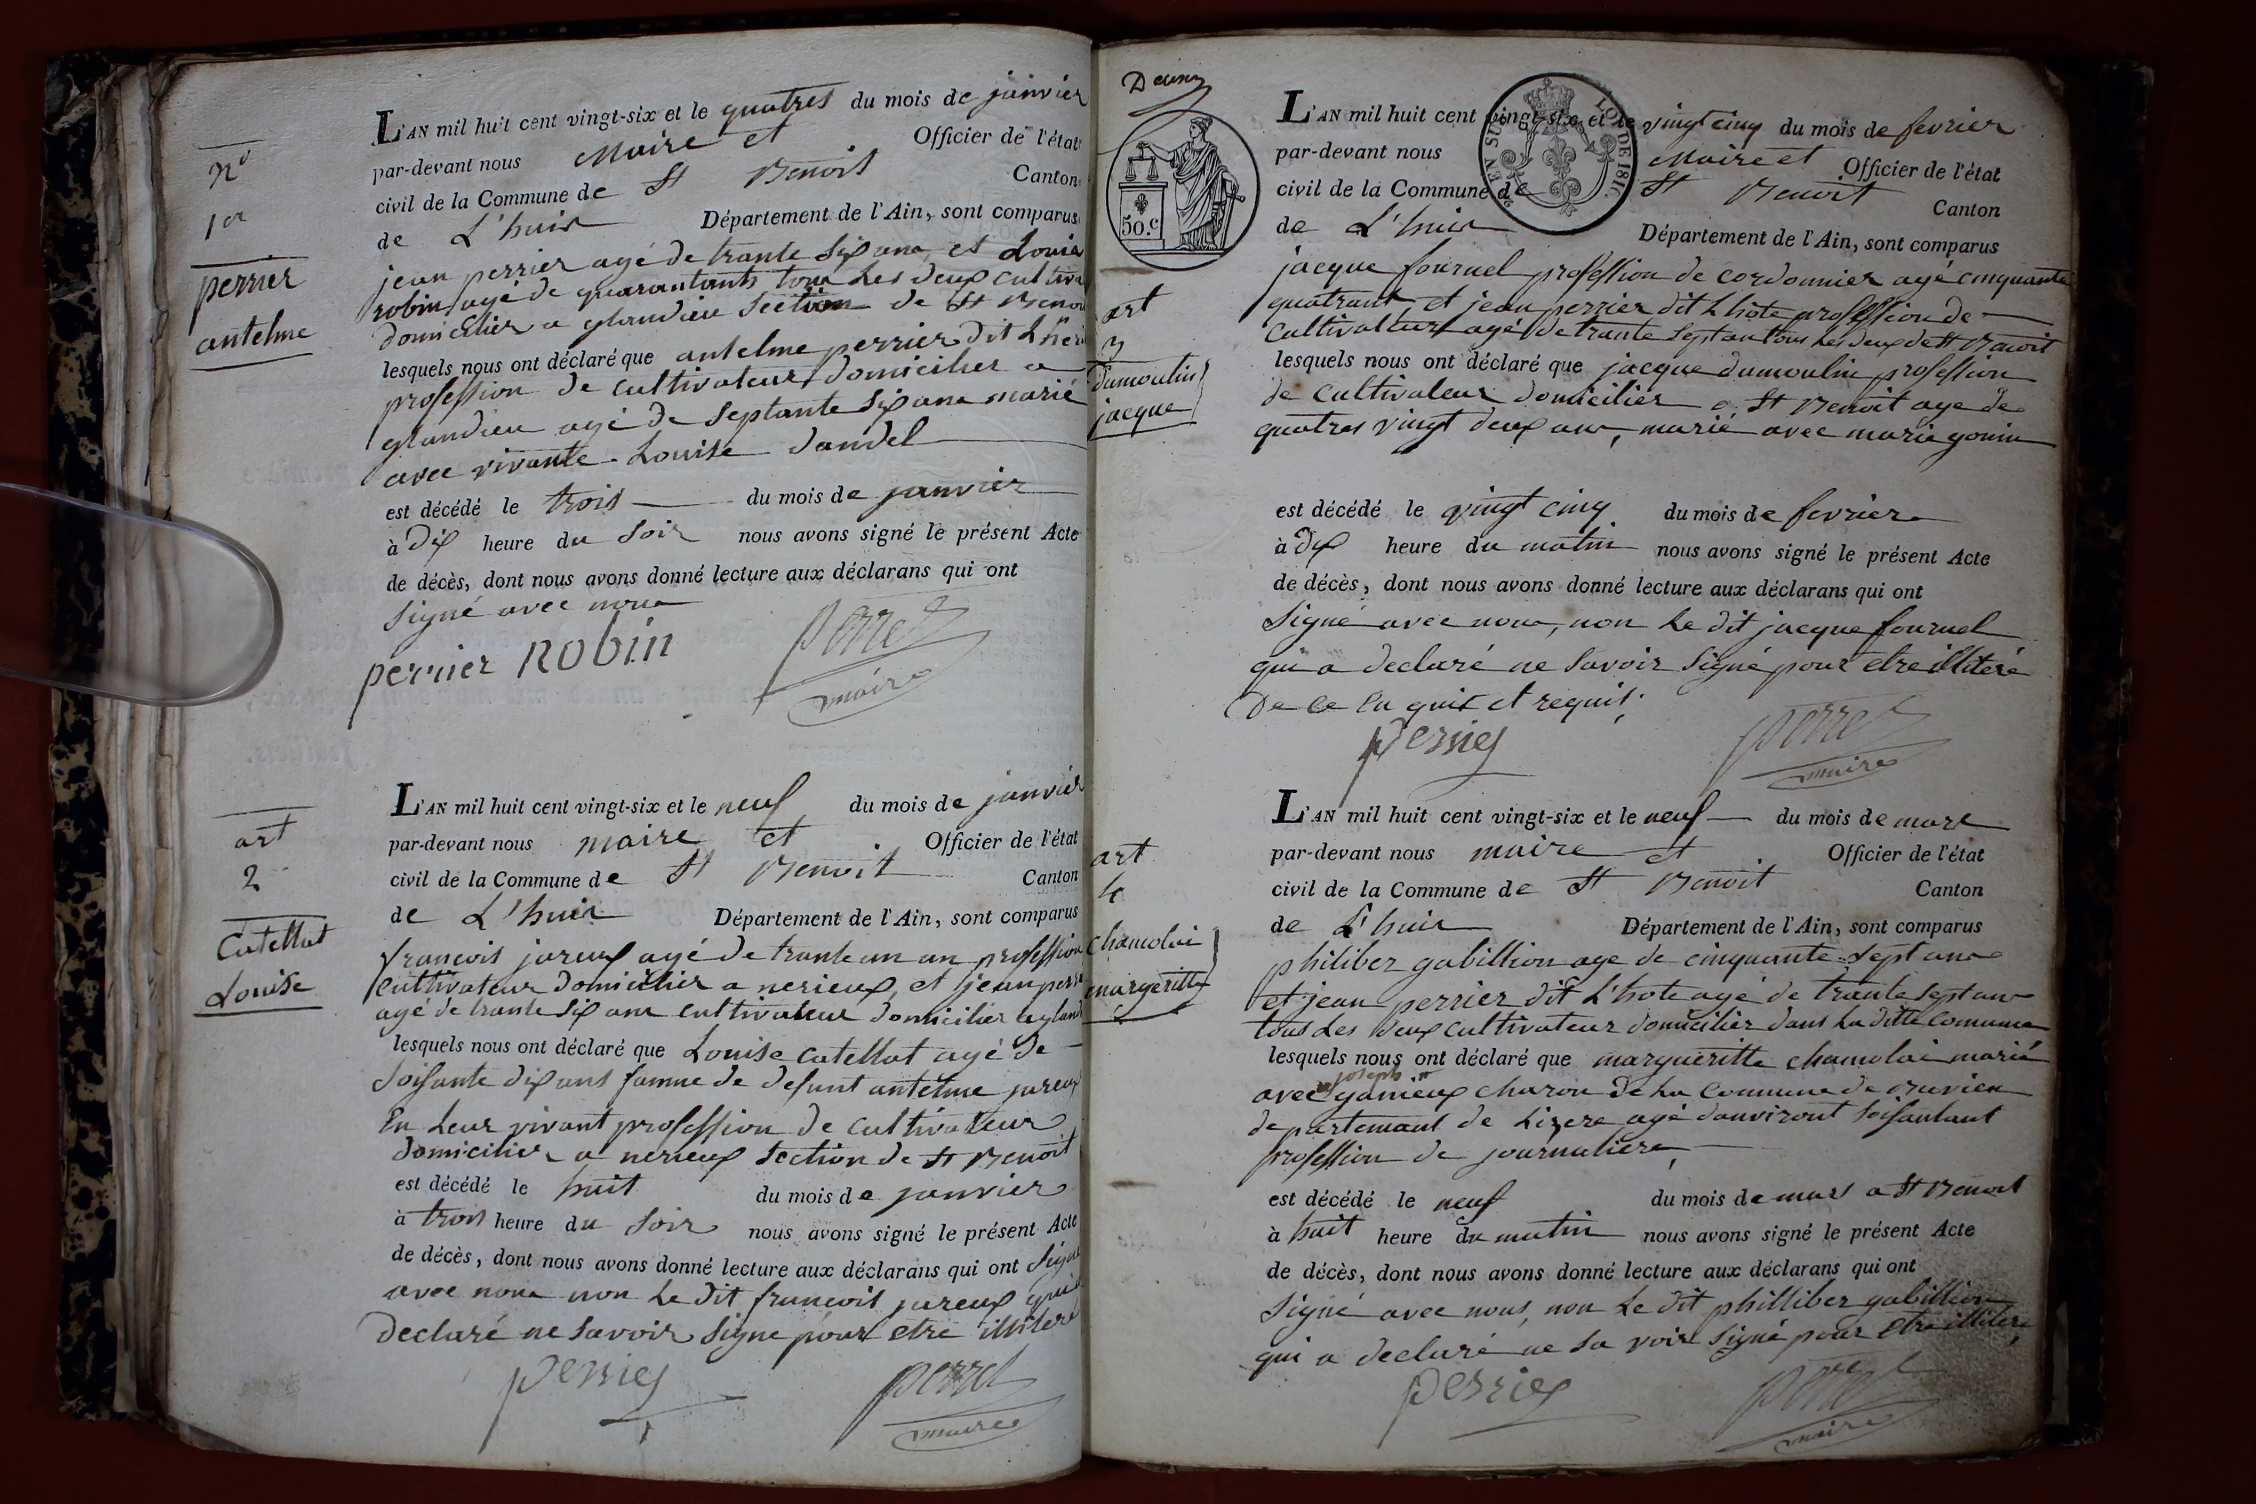 n°
1er
perrier
antelme
L'AN mil huit cent vingt-six et le quatres du mois de janvier
par-devant nous Maire et Officier de l'état
civil de la Commune de St Benoit Canton
de L'huis Département de l'Ain, sont comparus
jean perrier agé de trante six ans et Louis
robin agé de quarantants tous Les deux cultiva
domicilier a glandieu Section de St Benoi
lesquels nous ont déclaré que antelme perrier dit Lho
profession de cultivateur domicilier a
glandieu agé de septante six ans marié
avec vivante Louise Dandel
est décédé le trois du mois de janvier
à dix heure du soir nous avons signé le présent Acte
de décès, dont nous avons donné lecture aux déclarans qui ont
signé avec nous
perrier ROBIN perret
maire
art
2
Catellat
Louise
L'AN mil huit cent vingt-six et le neuf du mois de janvier
par-devant nous maire et Officier de l'état
civil de la Commune de St Benoit Canton
de L'huis Département de l'Ain, sont comparus
francois jareux agé de trante un an profession
cultivateur domicilier a nerieux et jean perri
agé de trante six ans cultivateur domicilier a gland
lesquels nous ont déclaré que Louise catellat agé de
soisante dix ans famme de defunt antelme jareux
En Leur vivant profession de cultivateur
domicilier a nerieux section de St Benoit
est décédé le huit du mois de janvier
à trois heure du soir nous avons signé le présent Acte
de décès, dont nous avons donné lecture aux déclarans qui ont signé
avec nous non Le dit francois jareux qui a
declaré ne savoir signe pour etre illiteré
perrier perret
maire
50.c
LOI DE 1816
art
3
dumoulin
jacque
L'AN mil huit cent vingt-six et le vingt cinq du mois de fevrier
par-devant nous Maire et Officier de l'état
civil de la Commune de St Benoit Canton
de L'huis Département de l'Ain, sont comparus
jacque fournel profession de cordonnier agé cinquante
quatrant, et jean perrier dit Lhote profession de
cultivalteur agé de trante sept an tous Les deux de St Benoit
lesquels nous ont déclaré que jacque dumoulin profession
de cultivateur domicilier a St Benoit age de
quatres vingt deux ans, marié avec marie gonin
est décédé le vingt cinq du mois de fevrier
à dix heure du matin nous avons signé le présent Acte
de décès, dont nous avons donné lecture aux déclarans qui ont
signé avec nous, non Le dit jacque fournel
qui a declaré ne savoir signé pour etre illiteré
De ce En quis et requis;
perrier perret
maire
art
4
chamolai
margeritte
L'AN mil huit cent vingt-six et le neuf du mois de mars
par-devant nous maire et Officier de l'état
civil de la Commune de St Benoit Canton
de L'huis Département de l'Ain, sont comparus
philiber gabillion age de cinquante sept ans
et jean perrier dit L'hote agé de trante sept ans
tous Les deux cultivateur domicilier dans La ditte comune
lesquels nous ont déclaré que margueritte chamolai marié
joseph
avec ganieux charon de La commune de
departemant de Lizere agé danviront soisantant
profession de journaliere
est décédé le neuf du mois de mars a St Benoit
à huit heure du matin nous avons signé le présent Acte
de décès, dont nous avons donné lecture aux déclarans qui ont
signé avec nous, non Le dit philliber gabillion
qui a declaré ne sa voir signé pour etre illiteré
perrier perret
maire